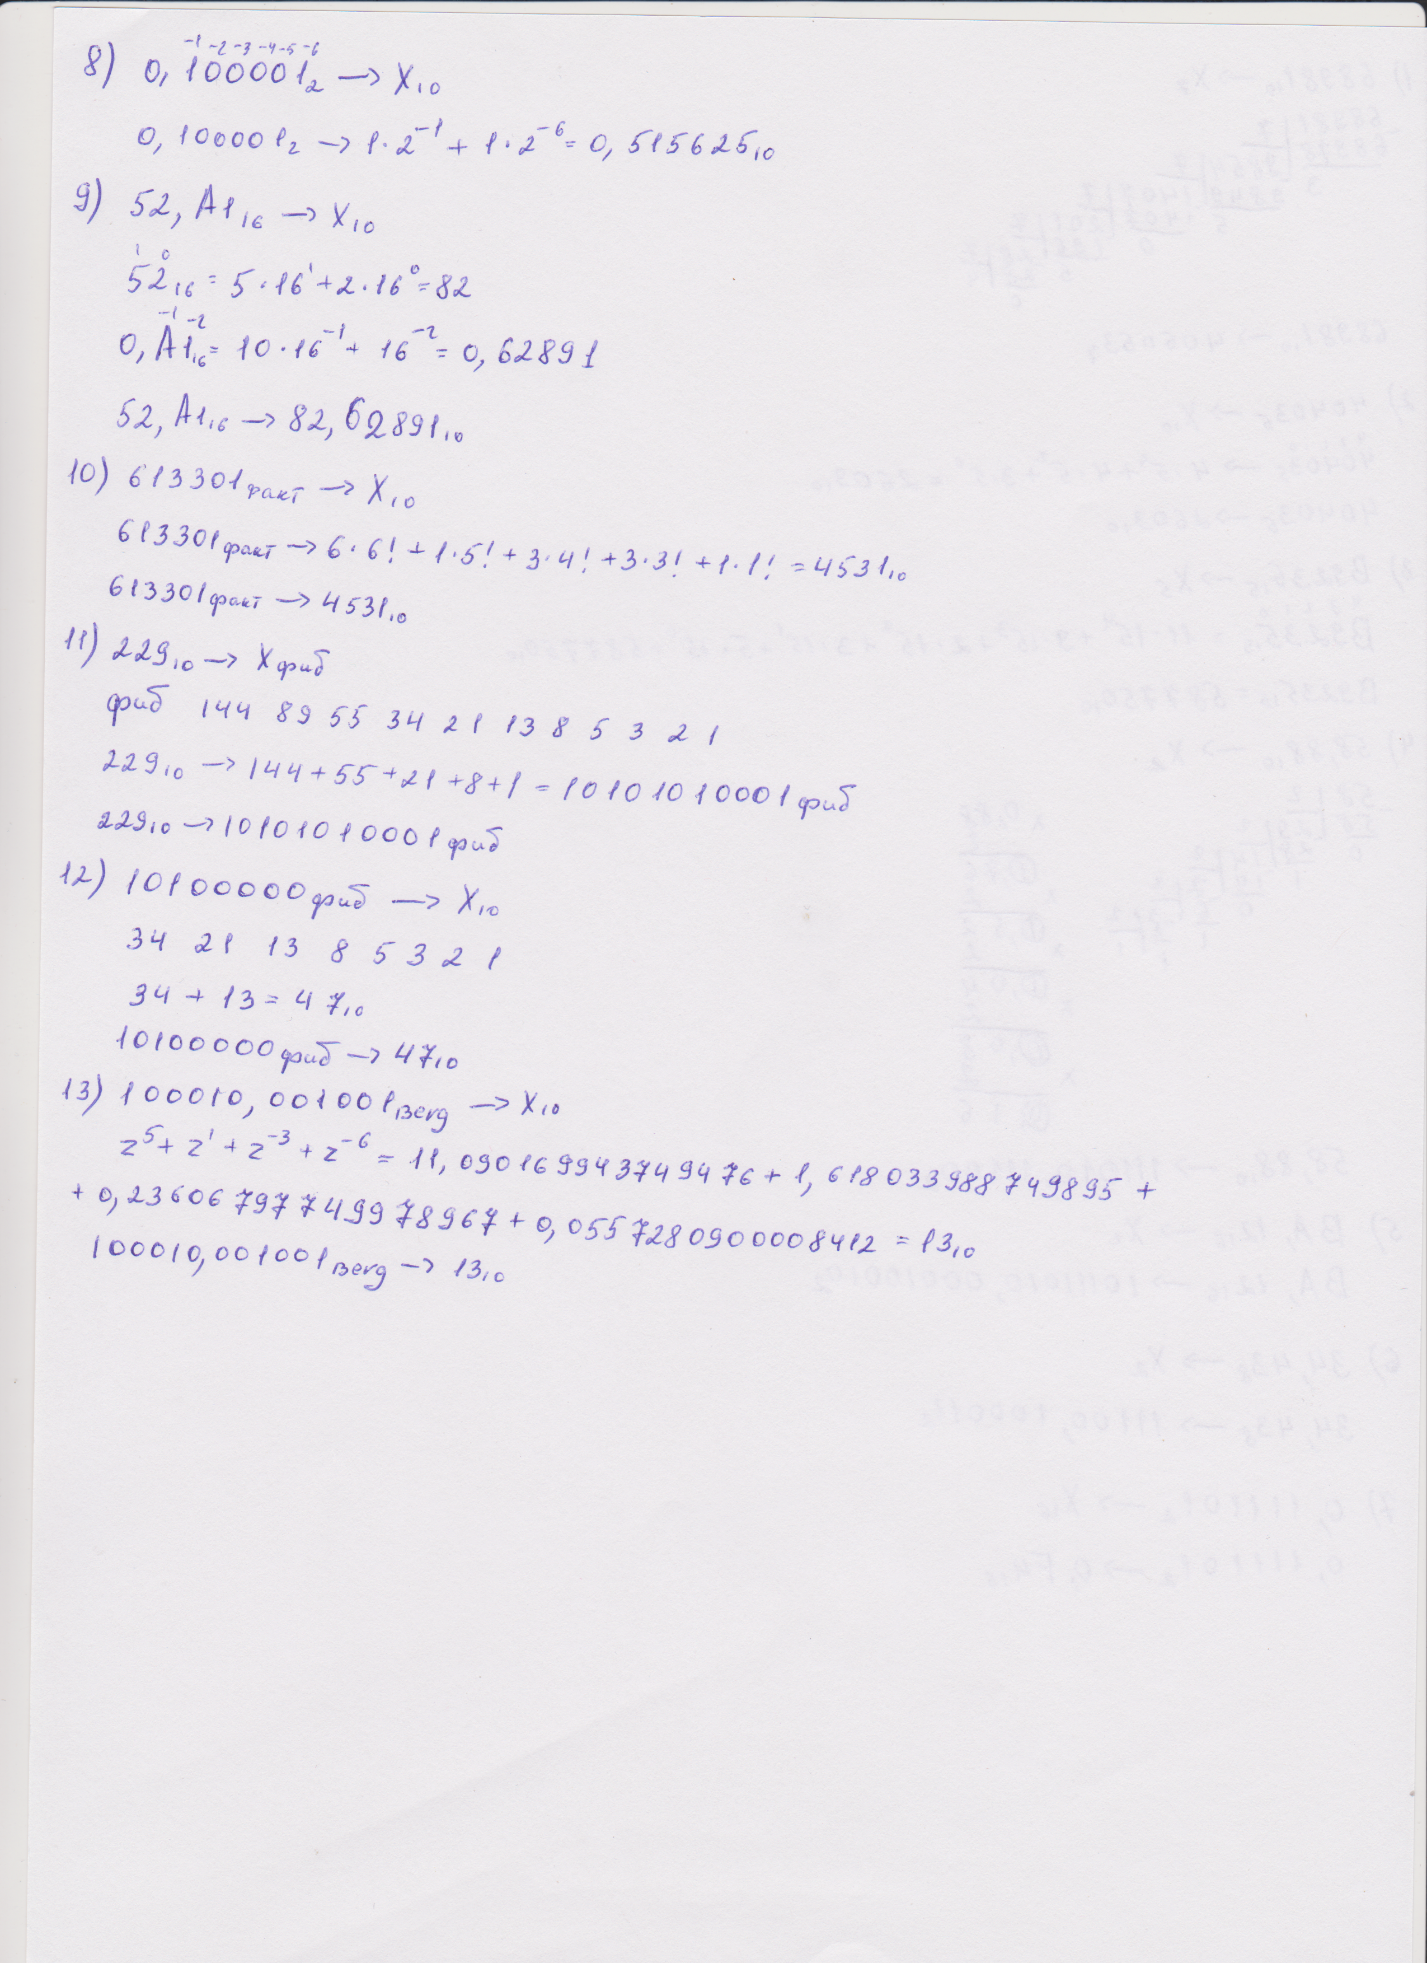 -1 -2 -3 -4 -5 -6
8) 0,100001₂ → X₁₀
0,100001₂ → 1·2⁻¹ + 1·2⁻⁶ = 0,515625₁₀
9) 52,A1₁₆ → X₁₀
1 0
52₁₆ = 5·16¹ + 2·16⁰ = 82
-1 -2
0,A1₁₆ = 10·16⁻¹ + 16⁻² = 0,62891
52,A1₁₆ → 82,62891₁₀
10) 613301факт → X₁₀
613301факт → 6·6! + 1·5! + 3·4! + 3·3! + 1·1! = 4531₁₀
613301факт → 4531₁₀
11) 229₁₀ → Xфиб
фиб 144 89 55 34 21 13 8 5 3 2 1
229₁₀ → 144+55+21+8+1 = 10101010001фиб
229₁₀ → 10101010001фиб
12) 10100000фиб → X₁₀
34 21 13 8 5 3 2 1
34 + 13 = 47₁₀
10100000фиб → 47₁₀
13) 100010,001001Berg → X₁₀
z⁵ + z¹ + z⁻³ + z⁻⁶ = 11,09016994374976 + 1,618033988749895 +
+ 0,23606797749978967 + 0,05572809000008412 = 13₁₀
100010,001001Berg → 13₁₀